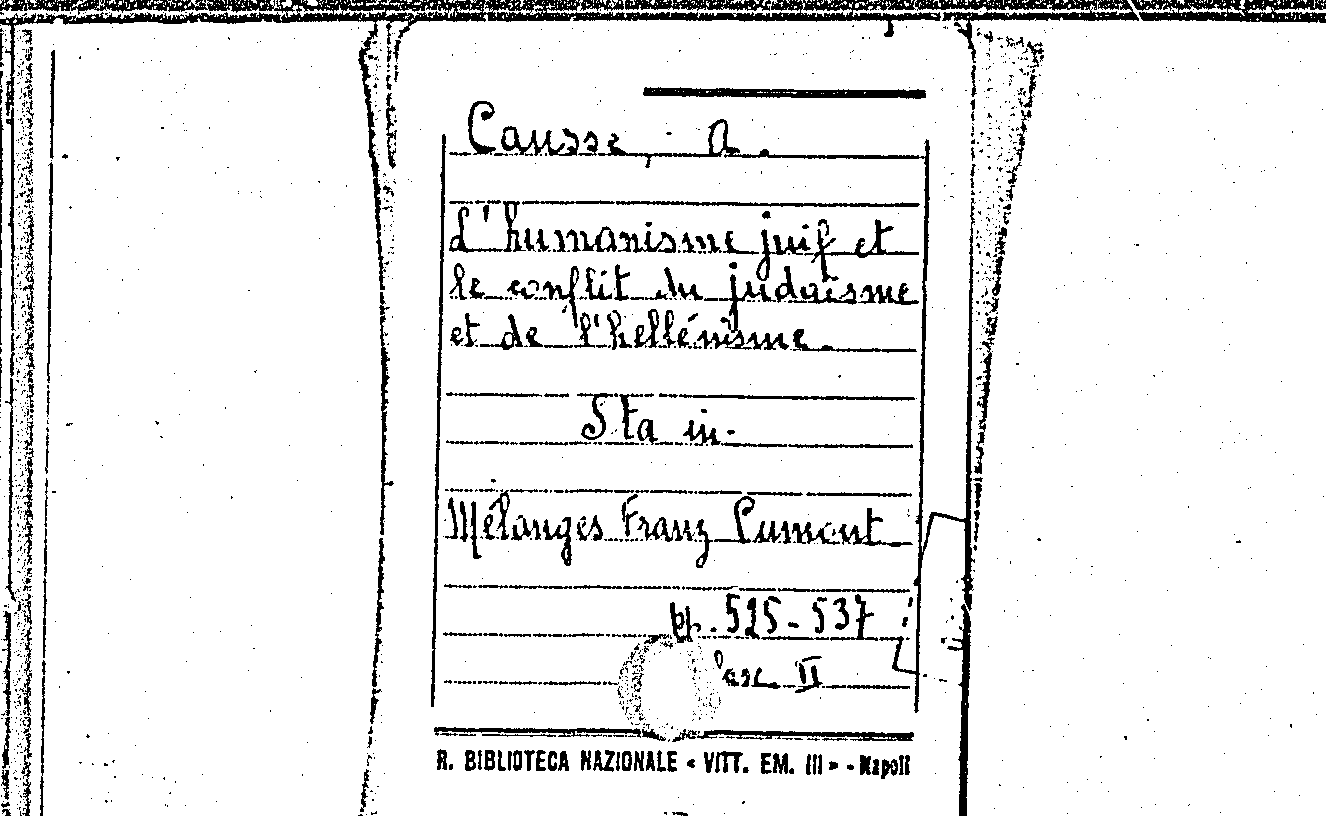 Causse, A.
L'humanisme juif et
le conflit du judaïsme
et de l'hellénisme.
Sta in-
Mélanges Franz Cumont
pp. 525-537
Fasc. II
R. BIBLIOTECA NAZIONALE « VITT. EM. III » - Napoli